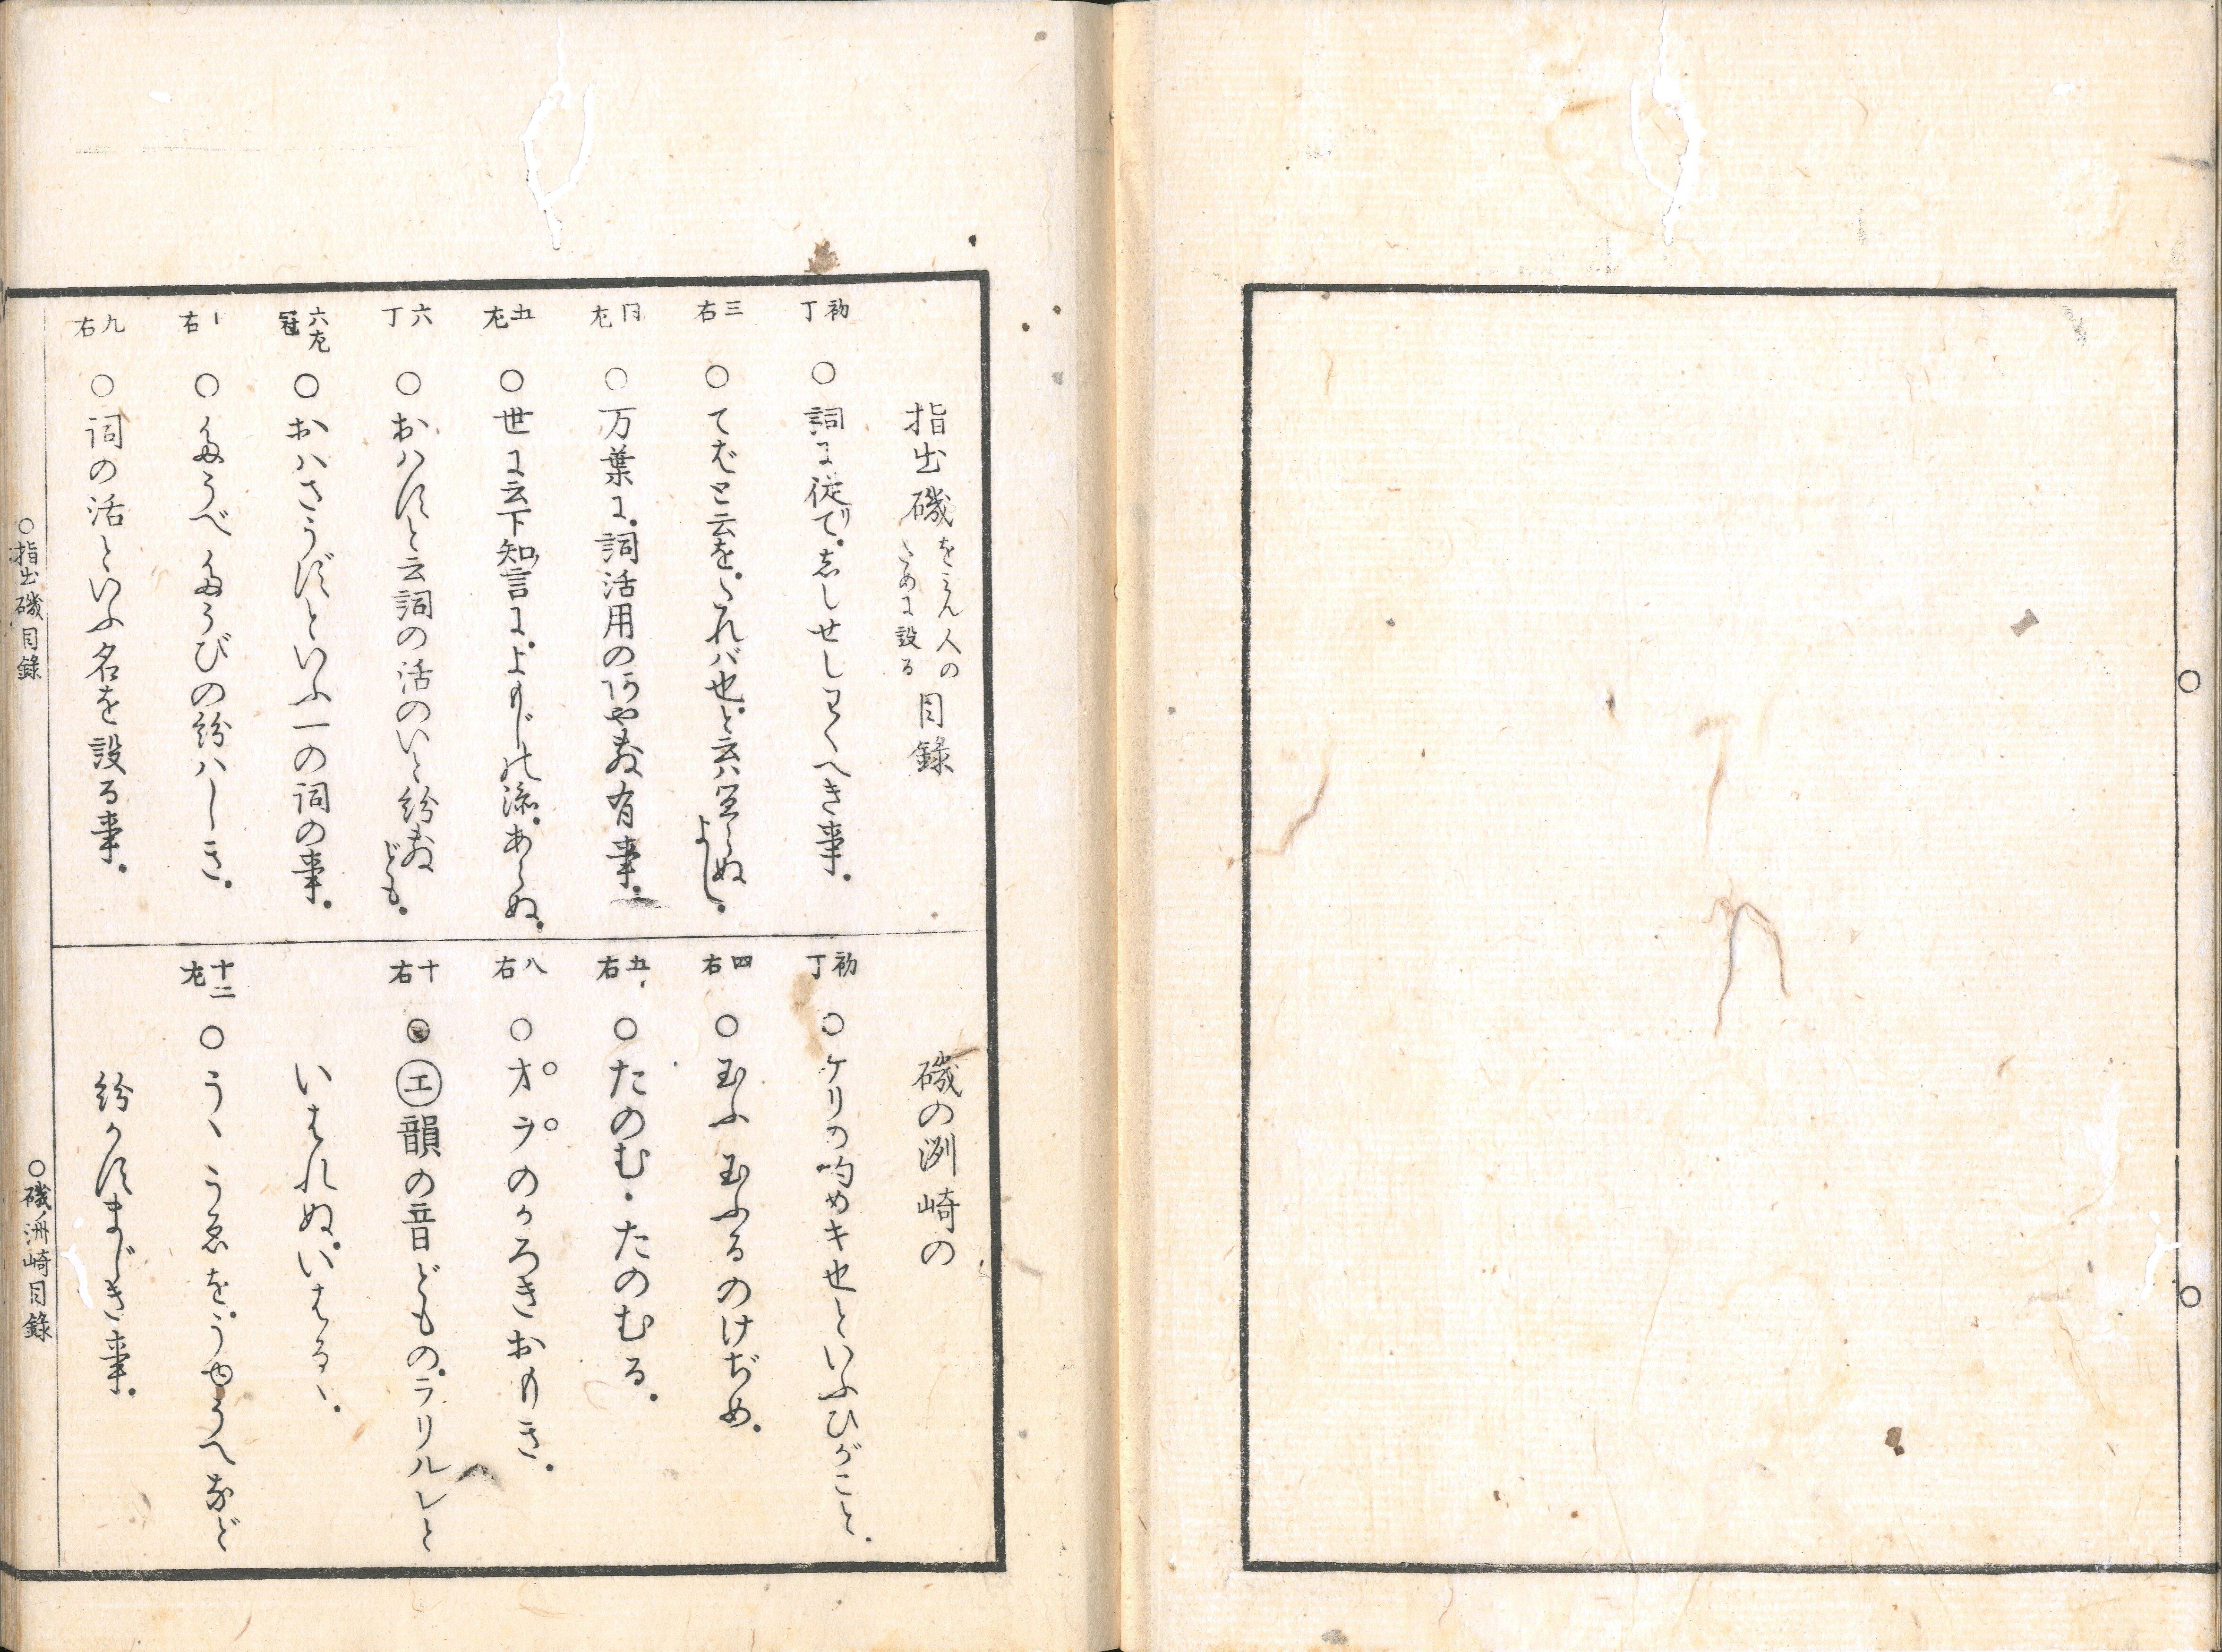 指出磯をみん人のために設る目録
初丁 ○詞に従て。志しせしわくべき事。
三右 ○てばと云を。たればば也。と云ハ
同左 ○万葉に。詞活用の有事。
五左 ○世に云下知言に。よもじの添。あらぬ。
六丁 ○おハすと云詞の活のいと紛ども。
六左冠 ○おハさうずといふ一の詞の事。
右 ○たうべたうびの紛ハしき。
九右 ○詞の活といふ名を設る事。
○指出磯目録
磯の洲崎の
初丁 ○ケリの約めキ也といふひがこと。
四右 ○玉ふ玉ふるのけぢめ。
五右 ○たのむ・たのむる。
八右 ○オヲのかろきおもき。
十右 ○エ韻の音どもの。ラリルレと
いはれぬ。いはるゝ。
十二左 ○うゝうゑを。うゆうへなど
紛かすまじき事。
○磯ノ洲崎目録